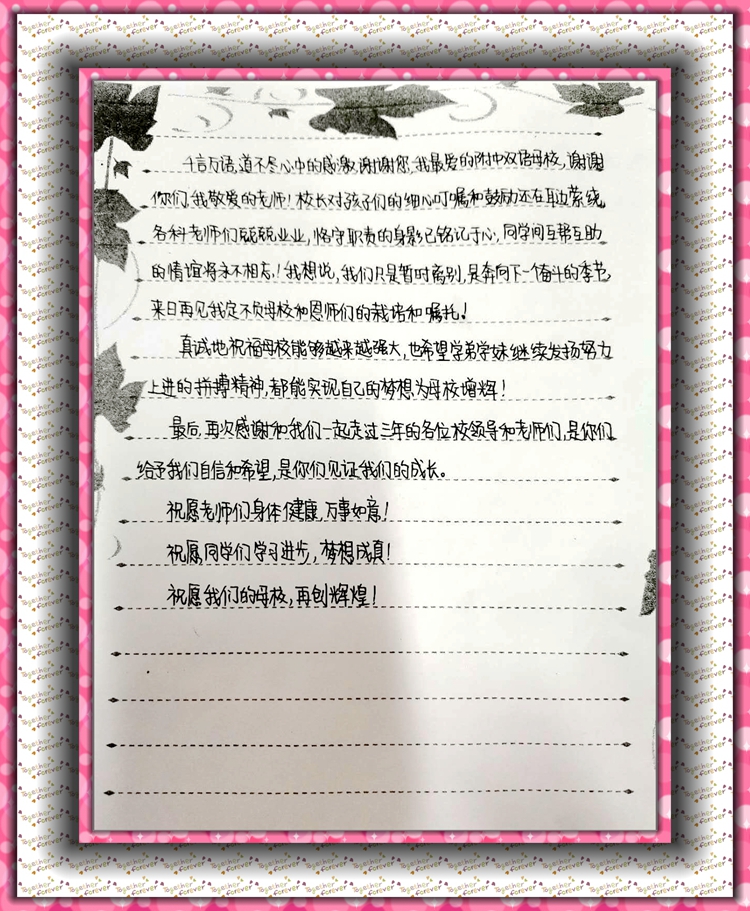 千言万语,道不尽心中的感激,谢谢您,我最爱的附中双语母校,谢谢
你们,我敬爱的老师!校长对孩子们的细心叮嘱和鼓励还在耳边萦绕,
各科老师们兢兢业业,恪守职责的身影已铭记于心,同学间互帮互助
的情谊将永不相忘!我想说,我们只是暂时离别,是奔向下一个奋斗的季节,
来日再见我定不负母校和恩师们的栽培和嘱托!
真诚地祝福母校能够越来越强大,也希望学弟学妹继续发扬努力
上进的拼搏精神,都能实现自己的梦想,为母校增辉!
最后,再次感谢和我们一起走过三年的各位校领导和老师们,是你们
给予我们自信和希望,是你们见证我们的成长。
祝愿老师们身体健康,万事如意!
祝愿同学们学习进步,梦想成真!
祝愿我们的母校,再创辉煌!
Together forever